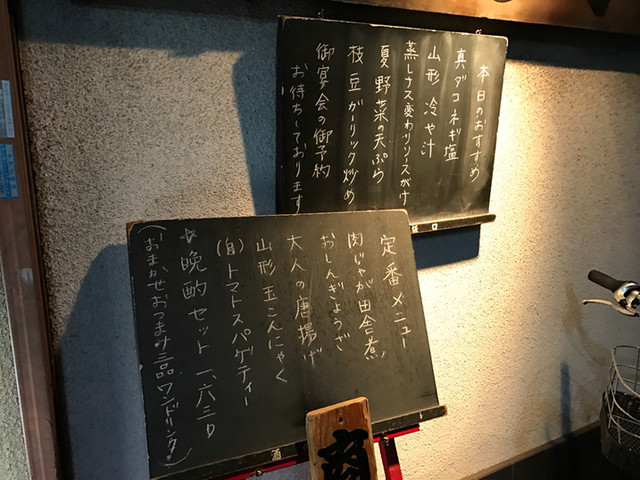 本日のおすすめ
真ダコネギ塩
山形 冷や汁
蒸しナス変わりソースがけ
夏野菜の天ぷら
枝豆ガーリック炒め
御宴会の御予約
お待ちしております
定番メニュー
肉じゃが田舎煮
おしんぎょうざ
大人の唐揚げ
山形玉こんにゃく
トマトスパゲティー
☆晩酌セット 一、六二〇
(おまかせおつまみ三品ワンドリンク。)
酒